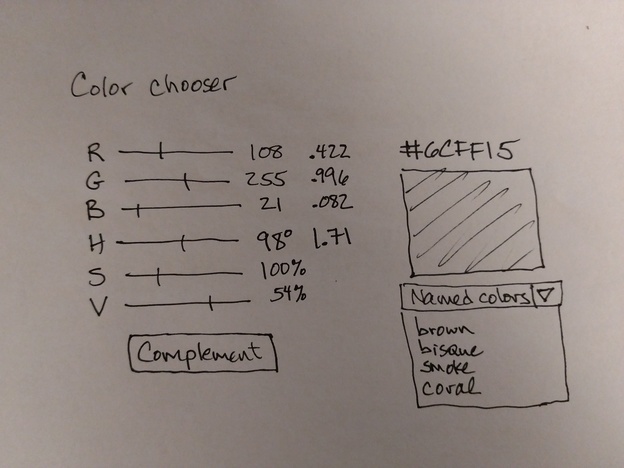 Color chooser
R 108 .422
G 255 .996
B 21 .082
H 98° 1.71
S 100%
V 54%
Complement
#6CFF15
Named colors
brown
bisque
smoke
coral